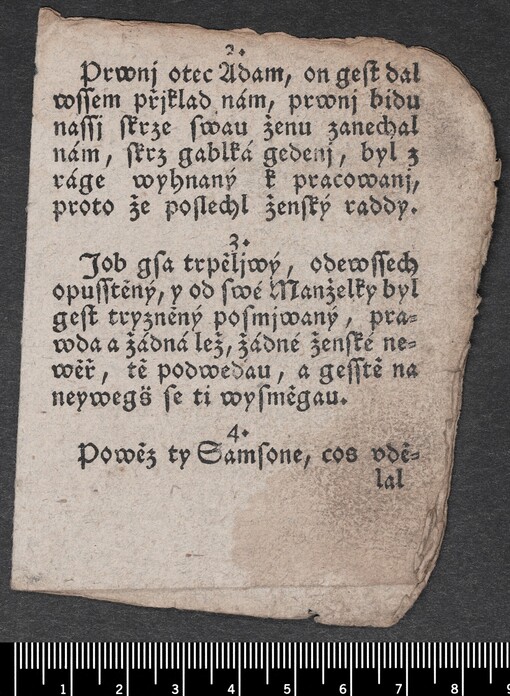 2.
Prwnj otec Adam, on gest dal
wssem přjklad nám, prwnj bidu
nassj skrze swau ženu zanechal
nám, skrz gablká gedenj, byl z
ráge wyhnaný k pracowanj,
proto že poslechl ženský raddy.
3.
Job gsa trpěljwý, odewssech
opusstěný, y od swé Manželky byl
gest tryzněný posmjwaný, pra=
wda a žádná lež, žádné ženské ne=
wěř, tě podwedau, a gesstě na
neywegš se ti wysměgau.
4.
Powěz ty Samsone, cos vdě=
lal
1 2 3 4 5 6 7 8 9